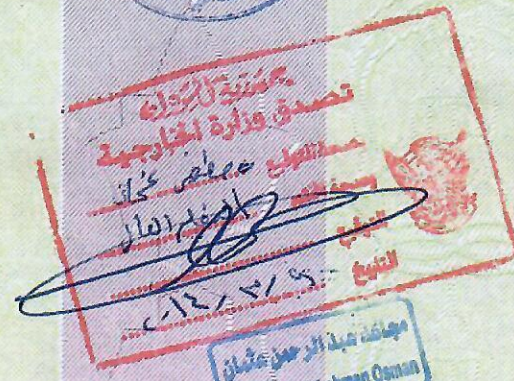 جمهورية السودان
تصدق وزارة الخارجية
صحة التوقيع
مصطفى عثمان
التعليم العالي
التوقيع
التاريخ ٢٠١٤/٣/
عبد الرحمن عثمان
Osman